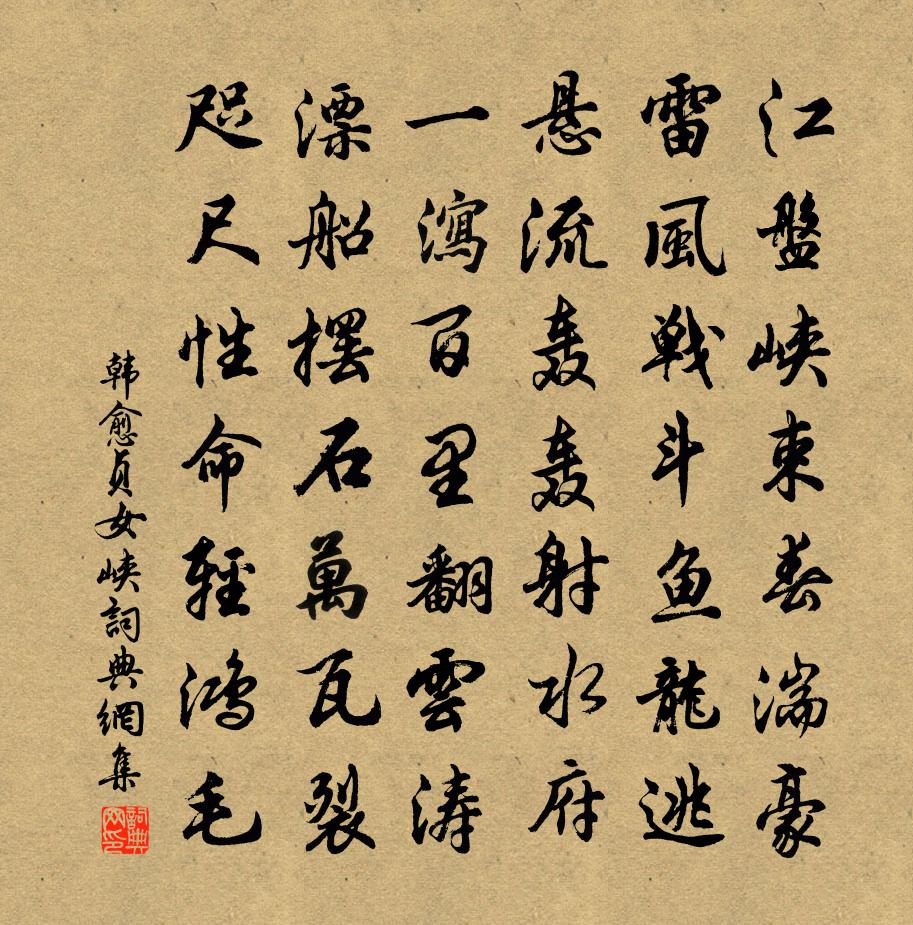 江盤峡束春湍豪
雷風戰斗鱼龍逃
悬流轰轰射水府
一瀉百里翻雲涛
漂船擺石萬瓦裂
咫尺性命輕鸿毛
韩愈貞女峡詞典網集
詞典网印